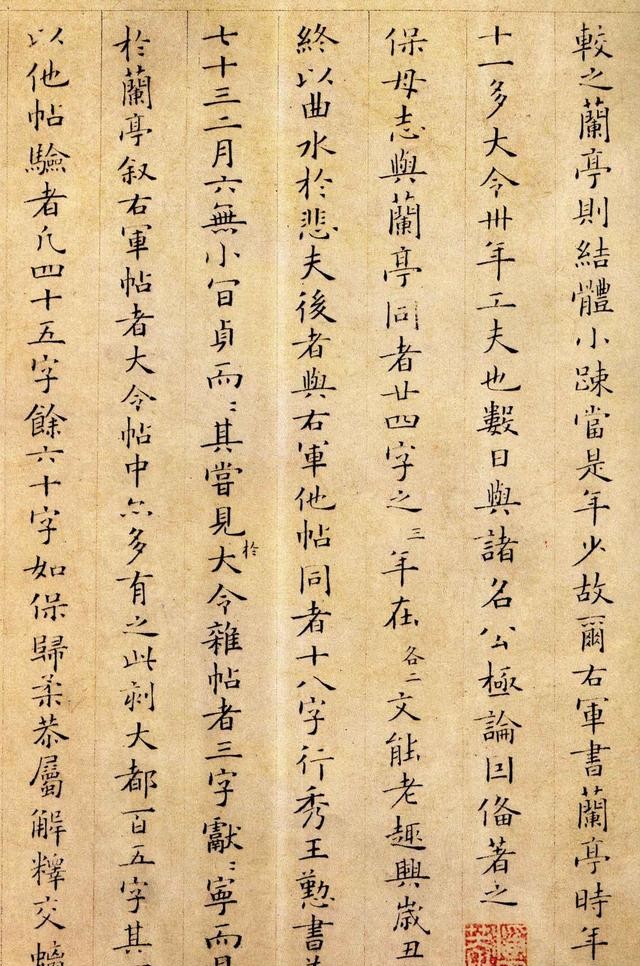 較之蘭亭則結體小踈當是年少故爾右軍書蘭亭時年
十一多大令卅年工夫也數日與諸名公極論囙俻著之
保母志與蘭亭同者廿四字之三年在各二文能老趣興歲丑
終以曲水於悲夫後者與右軍他帖同者十八字行秀王懃書
七十三二月六無小貞而〻其嘗見於大令雜帖者三字獻〻寧而
於蘭亭叙右軍帖者大令帖中亦多有之此刻大都百五字其
以他帖驗者凡四十五字餘六十字如保歸柔恭屬解釋交